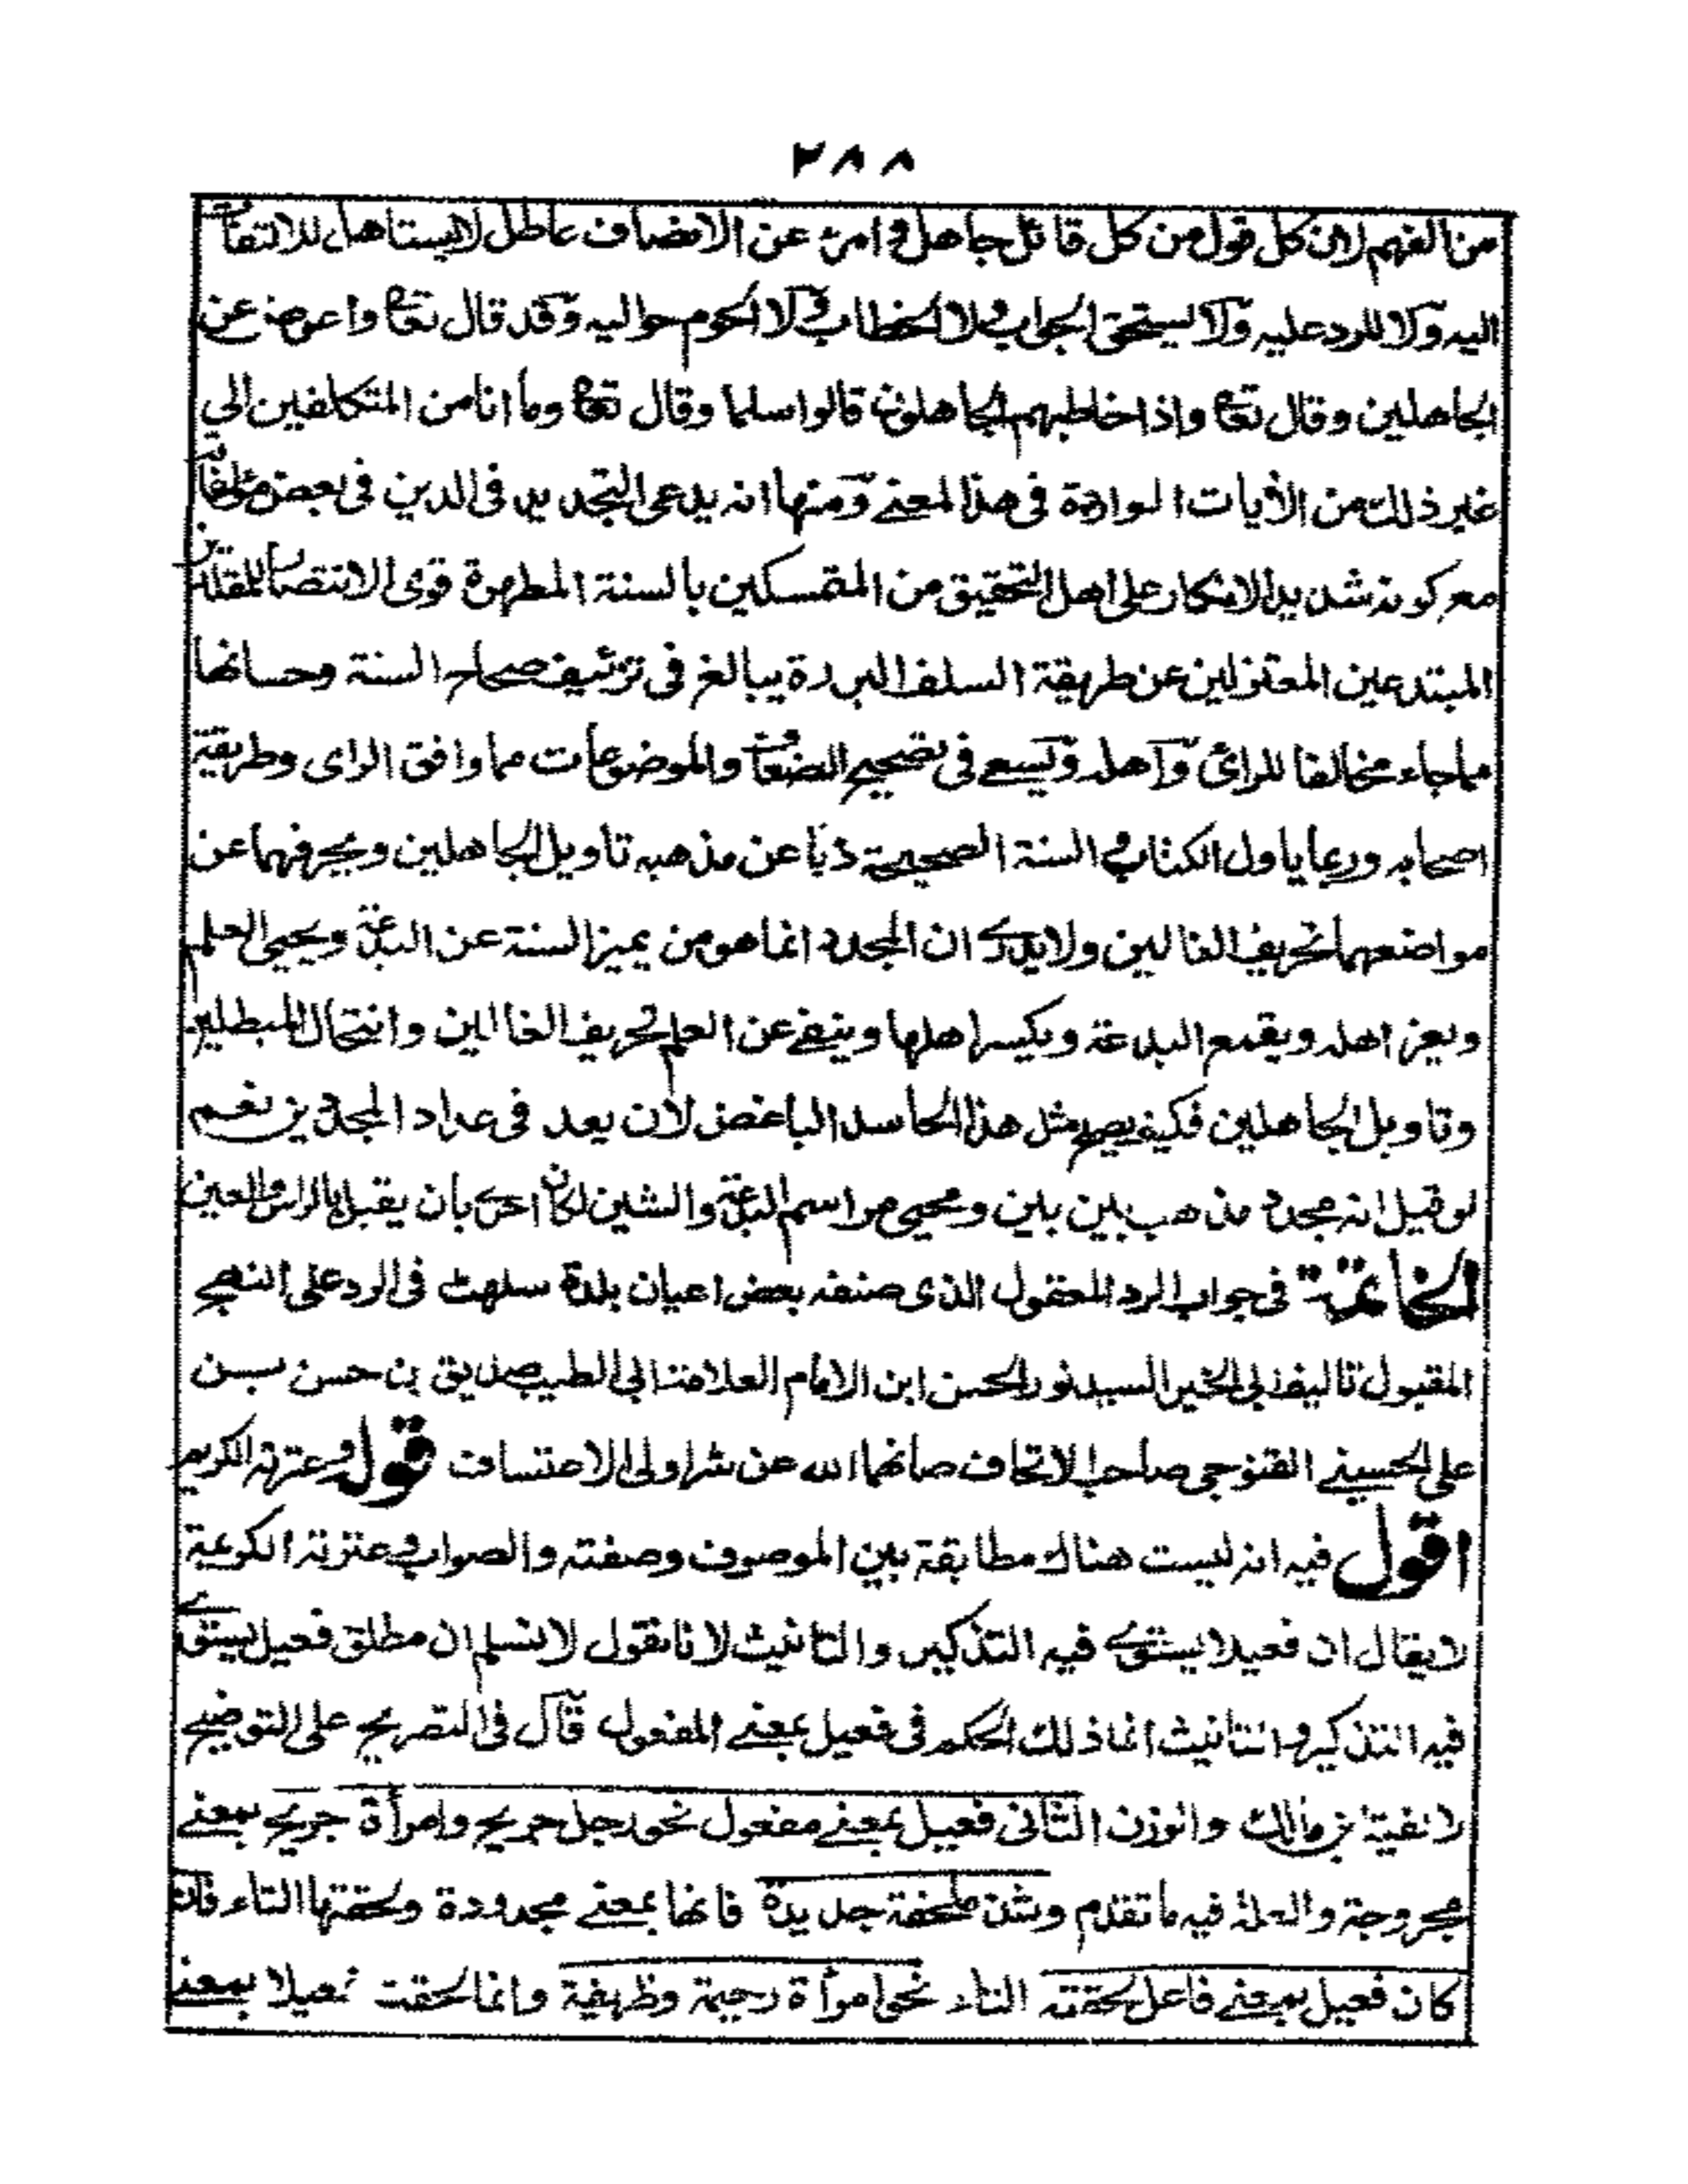 ٢٨٨
من الفهم لان كل قول من كل قائل جاهل وامرء عن الانصاف عاطل لا يستاهل للالتفات
اليه ولا للرد عليه ولا يستحق الجواب ولا الخطاب ولا الحوم حواليه وقد قال تعا واعرض عن
الجاهلين وقال تعا واذا خاطبهم الجاهلون قالوا سلما وقال تعا وما انا من المتكلفين الى
غير ذلك من الأيات الواردة فى هذا المعنے ومنها انه يدعى التجديد فى الدين فى بعض مؤلفاته
مع كونه شديد الانكار على اهل التحقيق من المتمسكين بالسنة المطهرة قوى الانتصار للمقلدين
المبتدعين المعتزلين عن طريقة السلف البررة يبالغ فى تزئيف صحاح السنة وحسانها
ما جاء مخالفا للرائ واهله ويسعے فى تصحيح الضعاف والموضوعات مما وافق الراى وطريقة
اصحابه وربما ياول الكتاب والسنة الصحيحة ذبا عن مذهبه تاويل الجاهلين ويحرفهما عن
مواضعهما تحريف الغالين ولا يدرے ان المجدد انما هو من يميز السنة عن البدعة ويحيي العلم
ويعز اهله ويقمع البدعة ويكسر اهلها وينفے عن العلم تحريف الغالين وانتحال المبطلين
وتاويل الجاهلين فكيف يصح مثل هذا الحاسد الباغض لان يعد فى عداد المجددين نعم
لو قيل انه مجدد مذهب بلين بلين ومحيى مراسم البدعة والشين لكان احرے بان يقبل بالراس والعين
الخاتمة فى جواب الرد المعقول الذى صنفه بعض اعيان بلدة سلهٹ فى الرد على النهج
المقبول تاليف ابى الخير السيد نور الحسن ابن الامام العلامة ابى الطيب صديق بن حسن بن
على الحسينے القنوجى صاحب الاتحاف صانهما الله عن شر اولى الاعتساف قوله وعترته الكريم
اقول فيه انه ليست هناك مطابقة بين الموصوف وصفته والصواب وعترته الكريمة
لا يقال ان فعيلا يستوے فيه التذكير والتانيث لانا نقول لا نسلم ان مطلق فعيل يستوے
فيه التذكير والتانيث انما ذلك الحكم فى فعيل بمعنے المفعول قال فى التصريح على التوضيح
لالفية ابن مالك والوزن الثانى فعيل بمعنے مفعول نحو رجل جريح وامرأة جريح بمعنے
مجروحة والعلة فيه ما تقدم وشذ ملحفة جديدة فانها بمعنے مجدودة ولحقتها التاء فان
كان فعيل بمعنے فاعل لحقته التاء نحو امرأة رحيمة وظريفة وانما لحقت فعيلا بمعنے